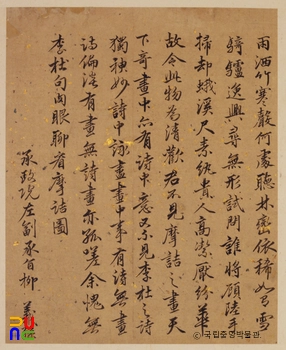 雨洒竹寒聲何處聽林巒依稀如雪
騎驢逸興尋無形試問誰將顧陸手
掃却蛾溪尺素紈貴人高潔厭紛華
故令此物為清歡君不見摩詰之畫天
下奇畫中亦有詩中意又不見李杜之詩
獨神妙詩中詠盡畫中事有詩無畫
詩偏淡有畫無詩畫亦孤嗟余愧無
李杜句向眼聊看摩詰圖
承政院左副承旨柳義
© 국립중앙박물관